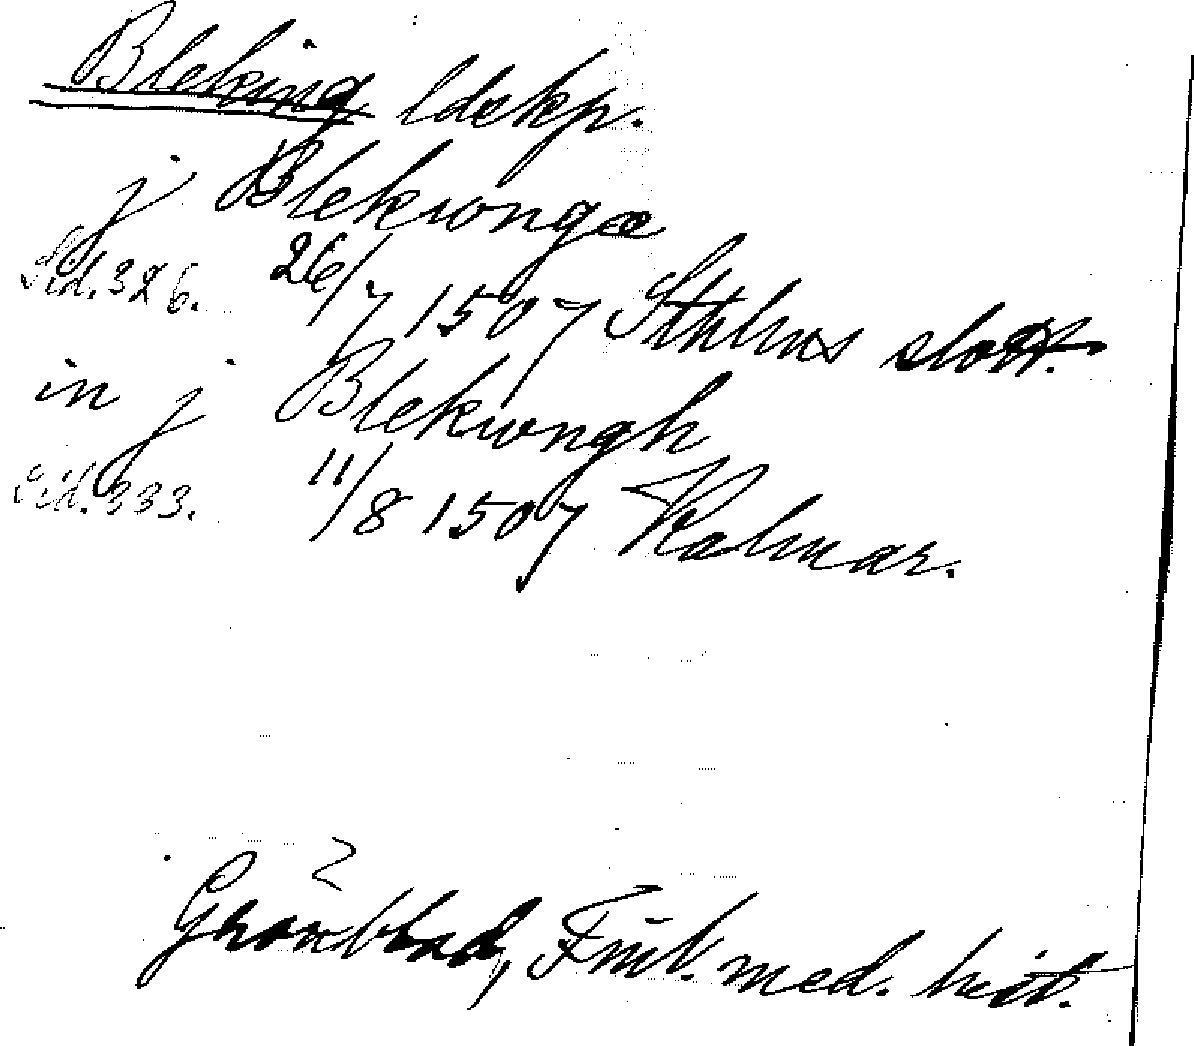 Bleking ldskp.
j Blekinngæ
Sid. 326. 26/7 1507 Sthlms slott.
in j Blekinngh
Sid. 333. 11/8 1507 Kalmar.
Grönblad, Finl. med. hist.